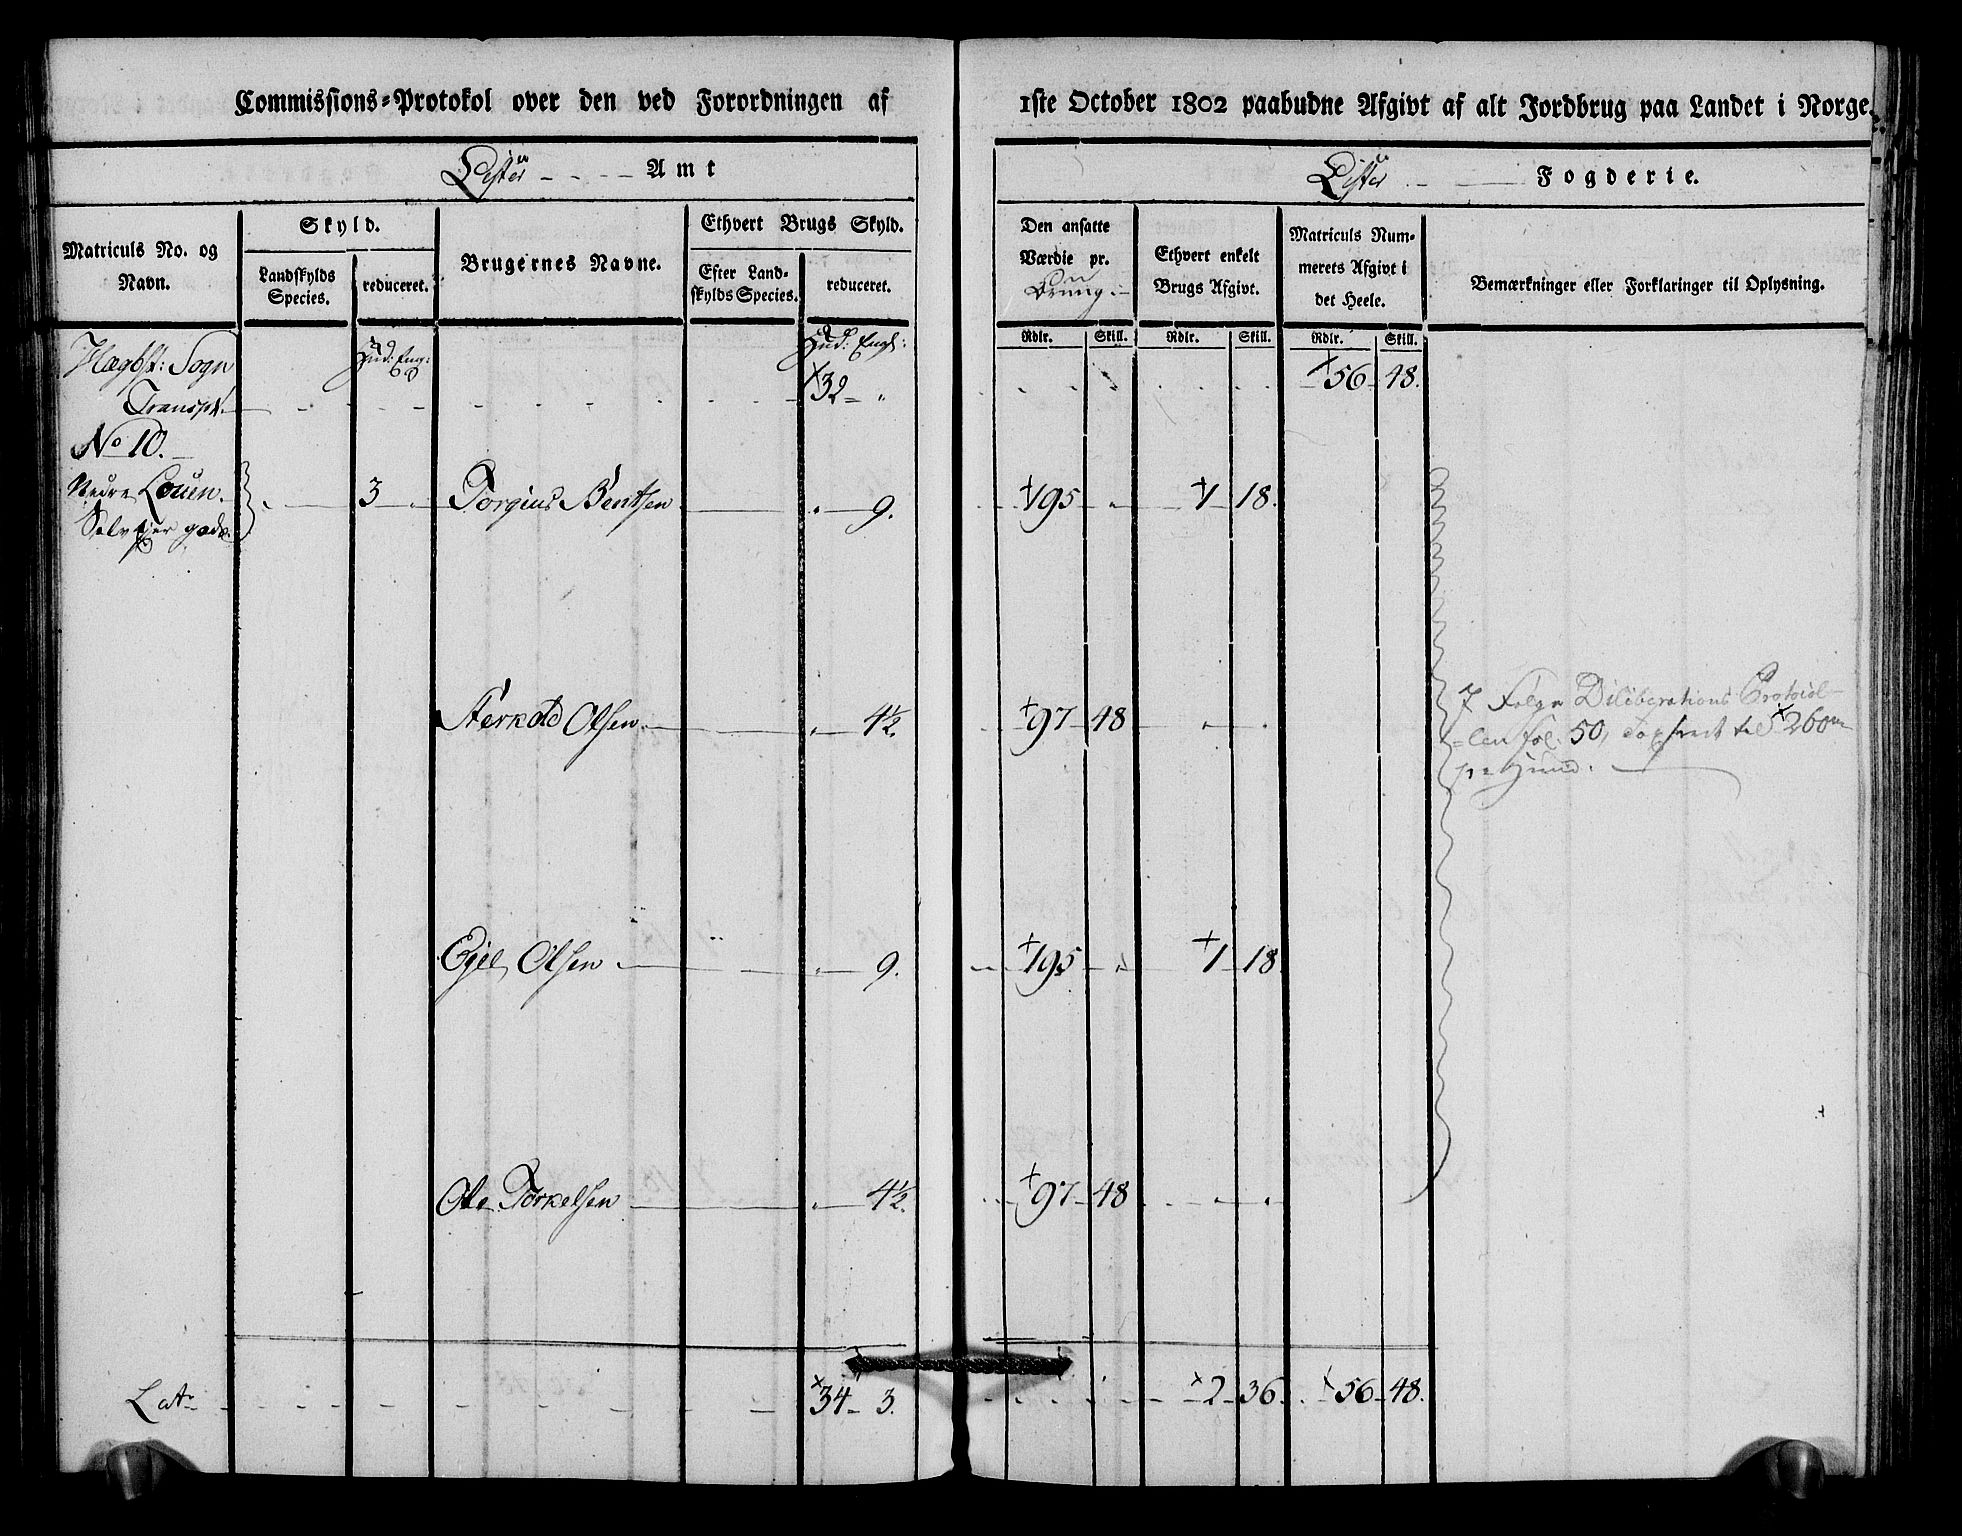 Commissions-Protokol over den ved Forordningen af 1ste October 1802 paabudne Afgivt af alt Jordbrug paa Landet i Norge.
Lister - - - Amt
Lister - Fogderie.
Matriculs No. og Navn.
Skyld.
Landskylds Species.
reduceret.
Brugernes Navne.
Ethvert Brugs Skyld.
Efter Landskylds Species.
reduceret.
Den ansatte Værdie pr. Brug
Ethvert enkelt Brugs Afgivt.
Matriculs Nummerets Afgivt i det Heele.
Bemærkninger eller Forklaringer til Oplysning.
Rdlr. Skill. Rdlr. Skill. Rdlr. Skill.
Hægbst: Sogn Hud: Eng: Hud: Engl:
Transpt. 32 - " 56 - 48.
No 10.
Nedre Louen. 3 Torgius Bentsen " 9. 195 - " 1 - 18.
Selv ejer gods
Sterkold Olsen. " 4½. 97 - 48 - " - "
I Følge Deliberations Protocol-
-len fol. 50, opført til 260 
pr Hund.
Egel Olsen " 9. 195 - " 1 - 18.
Ole Torkelsen " 4½. 97 - 48 - " - "
Lat 34 - 3. 2 - 36 - 56 - 48.